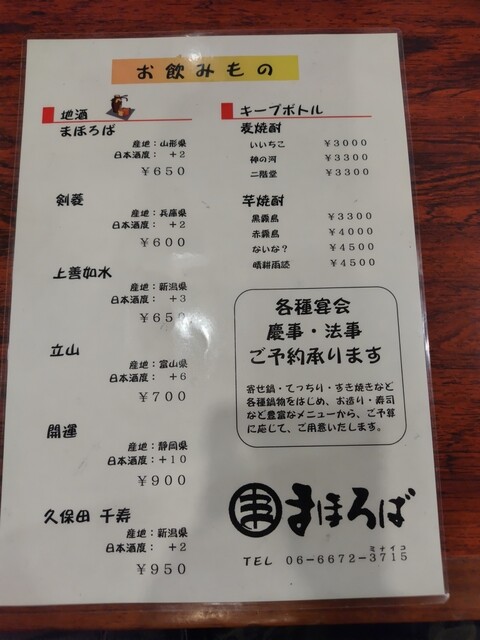 お飲みもの
地酒
まほろば
産地：山形県
日本酒度： ＋２
￥６５０
剣菱
産地：兵庫県
日本酒度： ＋２
￥６００
上善如水
産地：新潟県
日本酒度： ＋３
￥６５０
立山
産地：富山県
日本酒度： ＋６
￥７００
開運
産地：静岡県
日本酒度：＋１０
￥９００
久保田 千寿
産地：新潟県
日本酒度： ＋２
￥９５０
キープボトル
麦焼酎
いいちこ ￥３０００
神の河 ￥３３００
二階堂 ￥３３００
芋焼酎
黒霧島 ￥３３００
赤霧島 ￥４０００
ないな？ ￥４５００
晴耕雨読 ￥４５００
各種宴会
慶事・法事
ご予約承ります
寄せ鍋・てっちり・すき焼きなど
各種鍋物をはじめ、お造り・寿司
など豊富なメニューから、ご予算
に応じて、ご用意いたします。
まほろば
ミナイコ
ＴＥＬ ０６－６６７２－３７１５